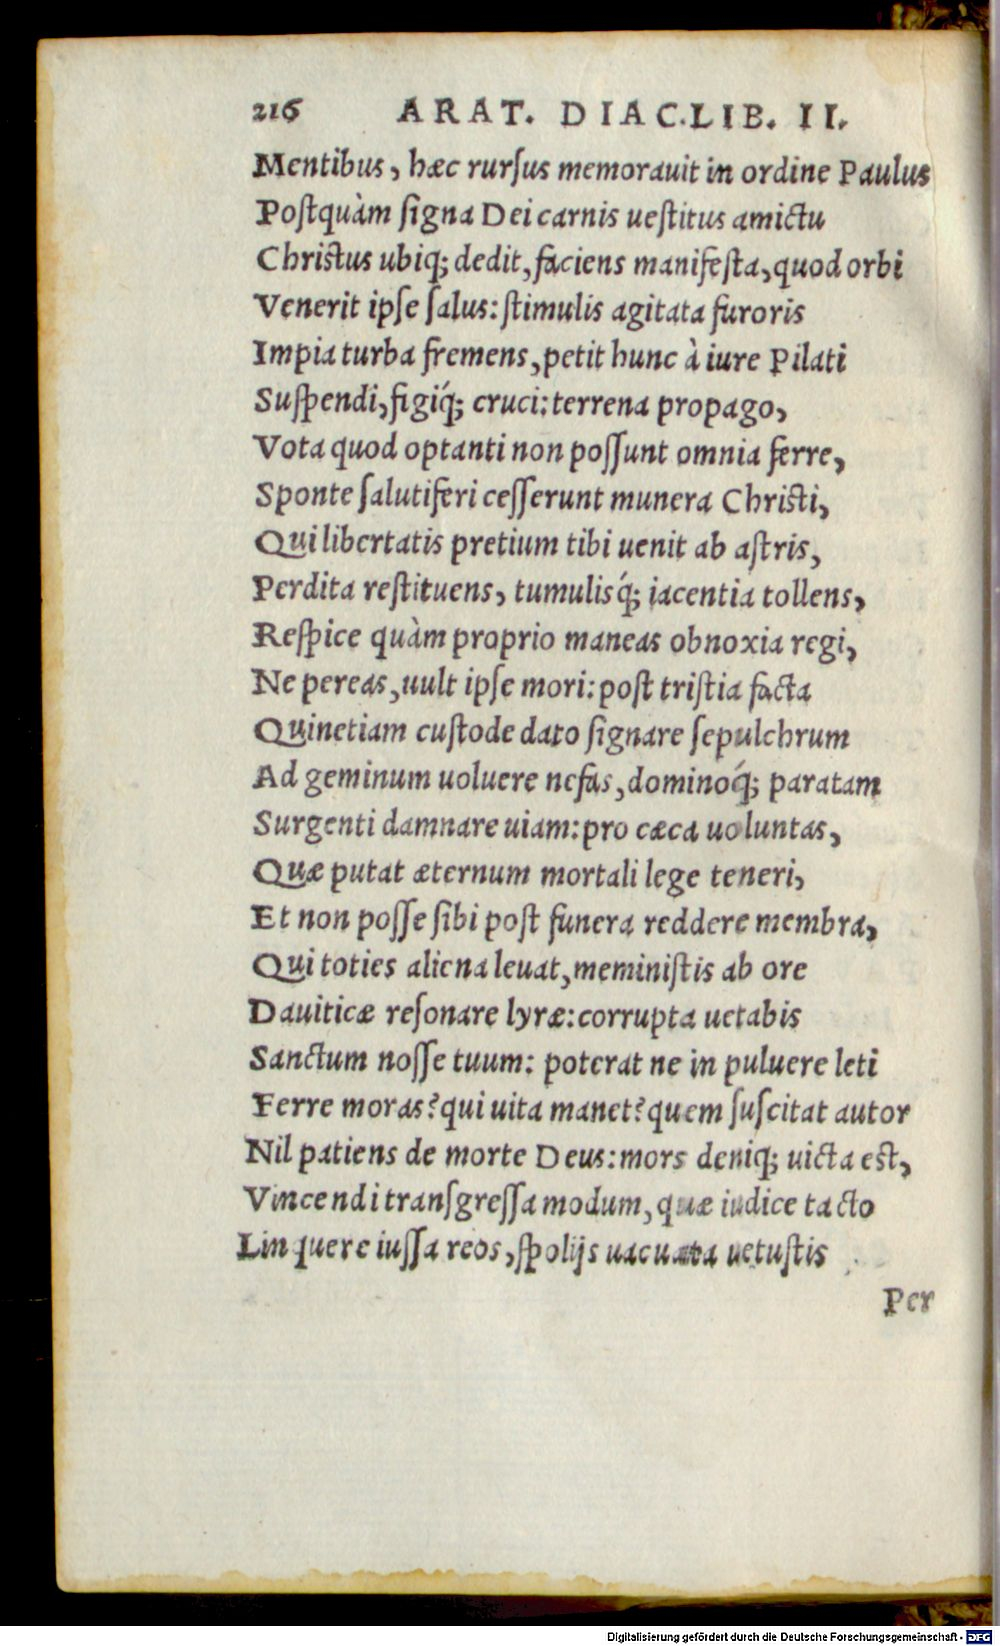 216 ARAT. DIAC. LIB. II.
Mentibus, hæc rurſus memorauit in ordine Paulus
Poſtquàm ſigna Dei carnis ueſtitus amictu
Christus ubiq; dedit, faciens manifeſta, quod orbi
Venerit ipſe ſalus: ſtimulis agitata furoris
Impia turba fremens, petit hunc à iure Pilati
Suſpendi, figiq́; cruci: terrena propago,
Vota quod optanti non poſſunt omnia ferre,
Sponte ſalutiferi ceſſerunt munera Christi,
Qui libertatis pretium tibi uenit ab aſtris,
Perdita reſtituens, tumulisq́; iacentia tollens,
Reſpice quàm proprio maneas obnoxia regi,
Ne pereas, uult ipſe mori: poſt triſtia facta
Quinetiam cuſtode dato ſignare ſepulchrum
Ad geminum uoluere nefas, dominoq́; paratam
Surgenti damnare uiam: pro cæca uoluntas,
Quæ putat æternum mortali lege teneri,
Et non poſſe ſibi poſt funera reddere membra,
Qui toties aliena leuat, meminiſtis ab ore
Dauiticæ reſonare lyræ: corrupta uetabis
Sanctum noſſe tuum: poterat ne in puluere leti
Ferre moras? qui uita manet? quem ſuſcitat autor
Nil patiens de morte Deus: mors deniq; uicta est,
Vincendi tranſgreſſa modum, quæ iudice tacto
Linquere iuſſa reos, ſpolijs uacuata uetuſtis
Per
Digitalisierung gefördert durch die Deutsche Forschungsgemeinschaft - DFG